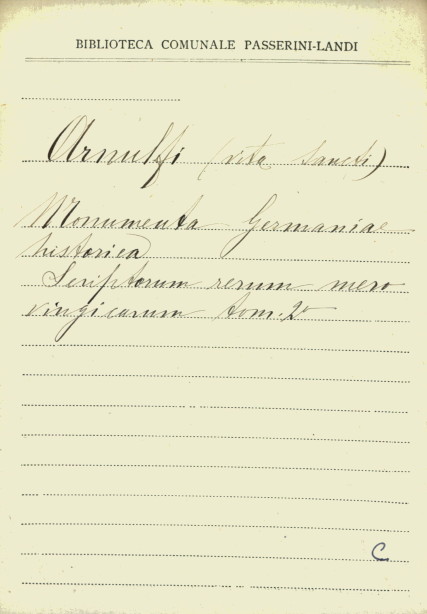 BIBLIOTECA COMUNALE PASSERINI-LANDI
Arnulfi (vita Sancti)
Monumenta Germaniae
historica
Scriptorum rerum mero
vingicarum tom. 2º
C